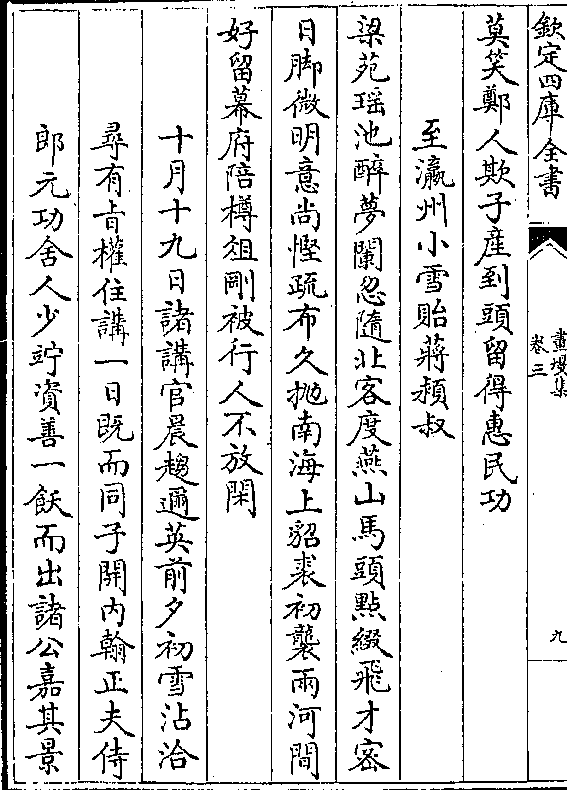 欽定四庫全書
畫墁集
卷三
九
莫笑鄭人欺子産到頭留得惠民功
至瀛州小雪貽蔣頴叔
梁苑瑶池醉夢闌忽隨北客度燕山馬頭點綴飛才密
日脚微明意尚慳疏布久抛南海上貂裘初襲兩河間
好留幕府陪樽俎剛被行人不放閑
十月十九日諸講官晨趨邇英前夕初雪沾洽
尋有㫖權住講一日既而同子開内翰正夫侍
郎元功舍人少竚資善一飫而出諸公嘉其景